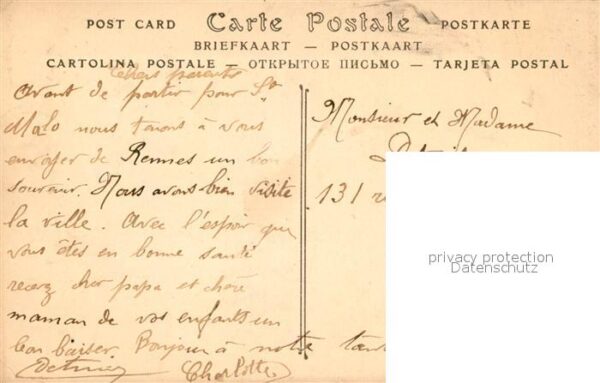 POST CARD Carte Postale POSTKARTE
BRIEFKAART — POSTKAART
CARTOLINA POSTALE — ОТКРЫТОЕ ПИСЬМО — TARJETA POSTAL
chers parents
Avant de partir pour St
Malo nous tenons à vous
envoyer de Rennes un bon
souvenir. Nous avons bien visité
la ville. Avec l'espoir que
vous êtes en bonne santé
recevez cher papa et chère
maman de vos enfants un
bon baiser. Bonjour à notre
Charlotte
Monsieur et Madame
131
privacy protection
Datenschutz